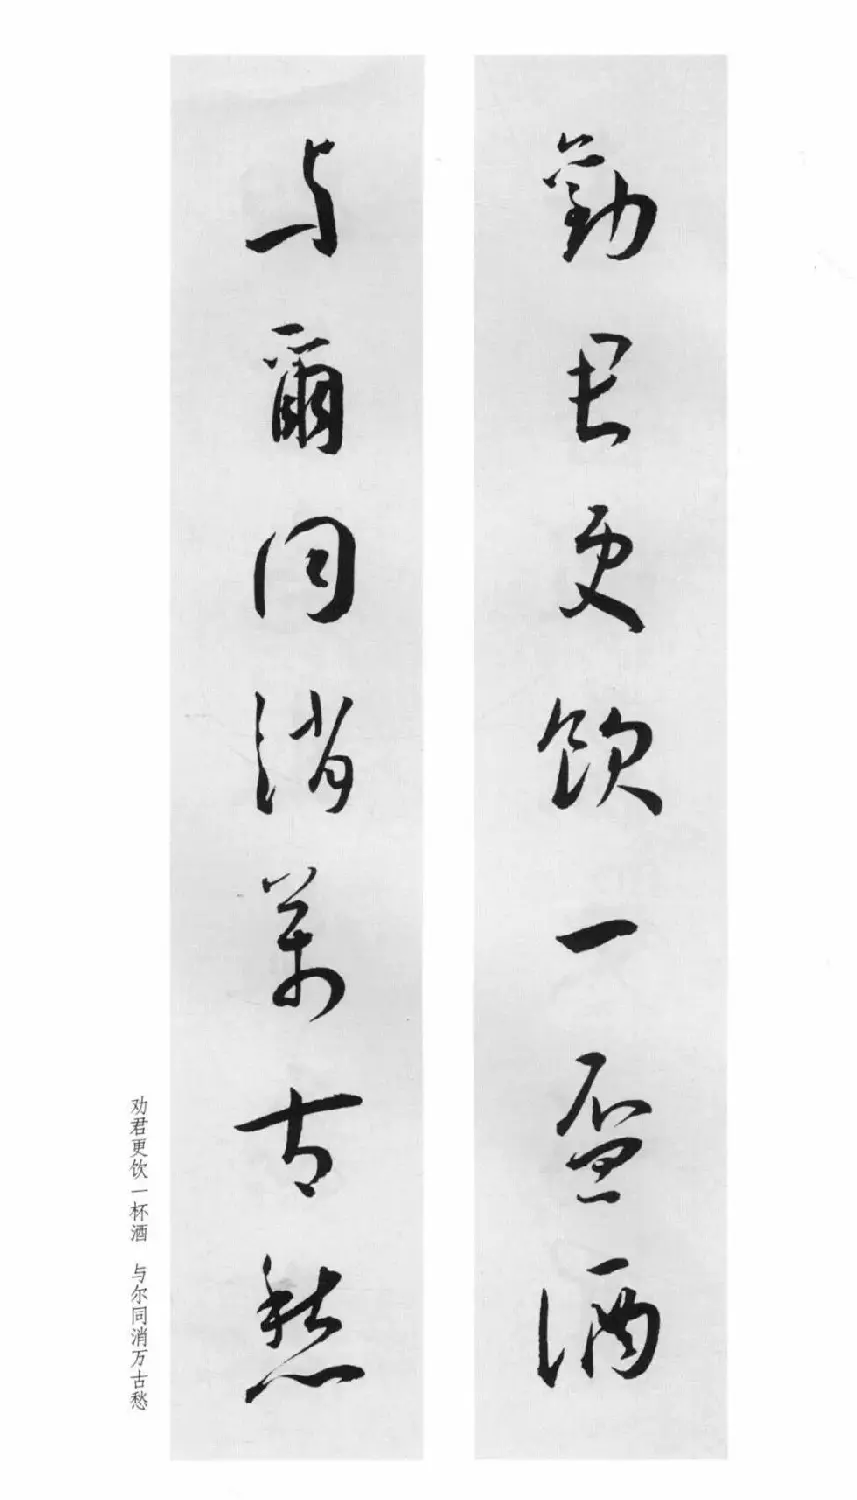 勸君更飲一盃酒
与爾同消萬古愁
劝君更饮一杯酒 与尔同消万古愁